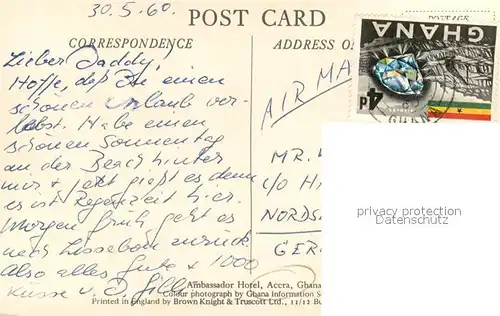 30.5.60.
POST CARD
CORRESPONDENCE
ADDRESS O
Lieber Daddy!
Hoffe, daß Du einen
schönen Urlaub ver-
lebst. Habe einen
schönen Sonnentag
an der Beach hinter
mir + jetzt gießt es denn
es ist Regenzeit hier.
Morgen früh geht es
nach Lissabon zurück.
Also alles Gute + 1000
Küsse v. D.
AIR MA
MR.
C/O H
NORDS
GER
GHANA
4d
GHANA
privacy protection
Datenschutz
Ambassador Hotel, Accra, Ghana
Colour photograph by Ghana Information S
Printed in England by Brown Knight & Truscott Ltd., 11/12 Bu